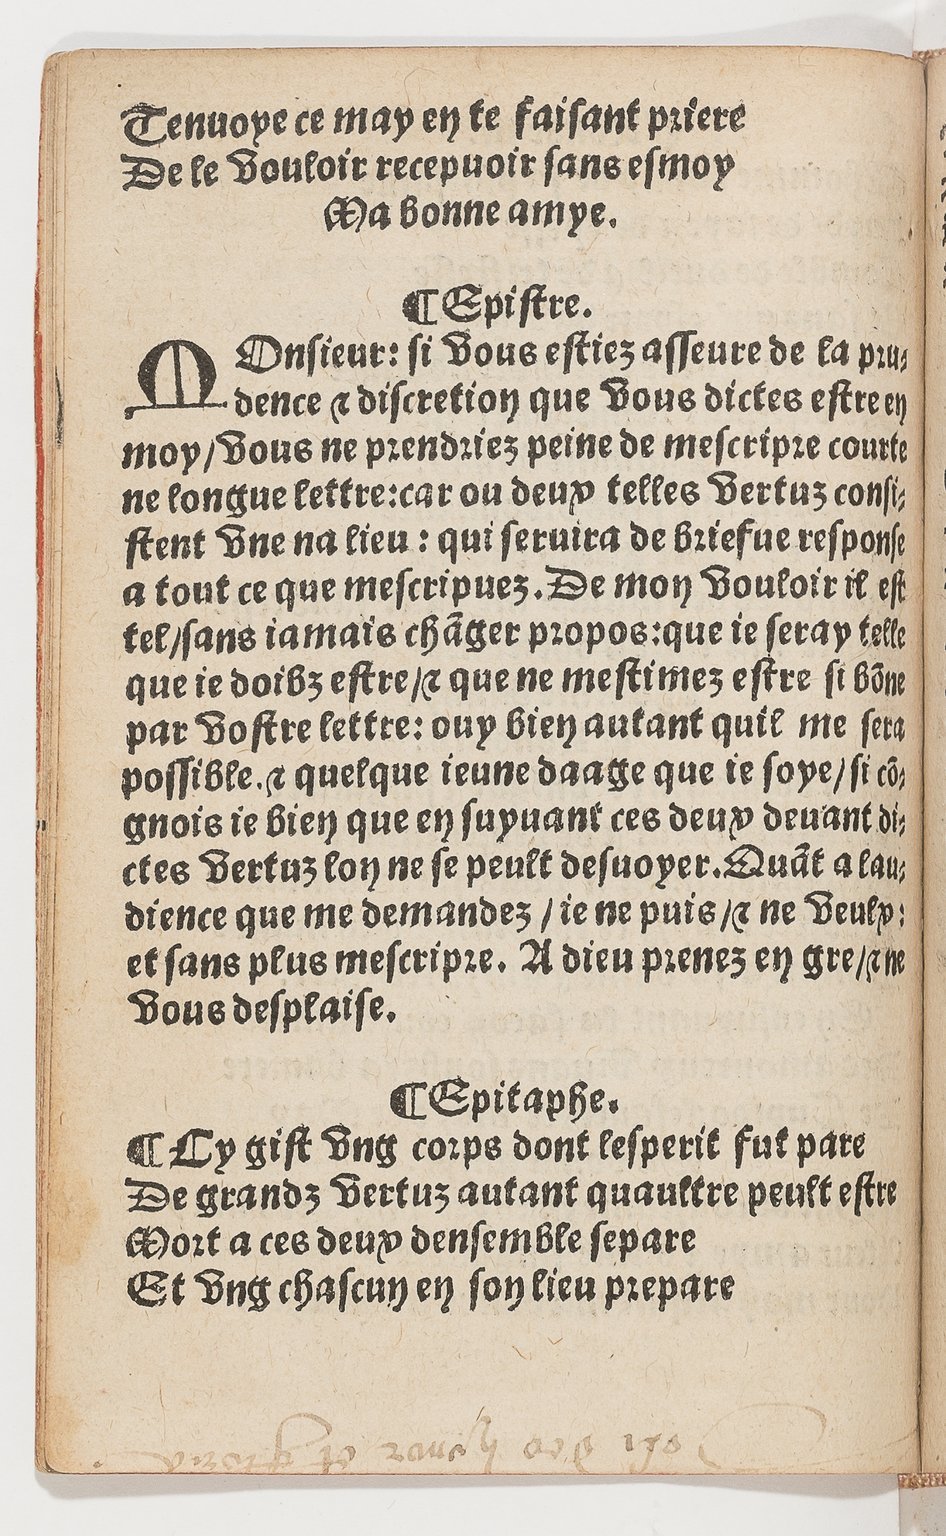 Tenuoye ce may en te faisant priere
De le vouloir recepuoir sans esmoy
Ma bonne amye.
¶Epistre.
MOnsieur: si vous estiez asseure de la pru-
dence & discretion que vous dictes estre en
moy/vous ne prendriez peine de mescripre courte
ne longue lettre:car ou deux telles vertuz consi-
stent vne na lieu : qui seruira de briefue response
a tout ce que mescripuez. De mon vouloir il est
tel/sans iamais chãger propos:que ie seray telle
que ie doibz estre/& que ne mestimez estre si bõne
par vostre lettre: ouy bien autant quil me sera
possible.& quelque ieune daage que ie soye/si cõ-
gnois ie bien que en suyuant ces deux deuant di-
ctes vertuz lon ne se peult desuoyer. Quãt a lau-
dience que me demandez / ie ne puis/& ne veulx:
et sans plus mescripre. A dieu prenez en gre/& ne
vous desplaise.
¶Epitaphe.
¶ Cy gist vng corps dont lesperit fut pare
De grandz vertuz autant quaultre peult estre
Mort a ces deux densemble separe
Et vng chascun en son lieu prepare